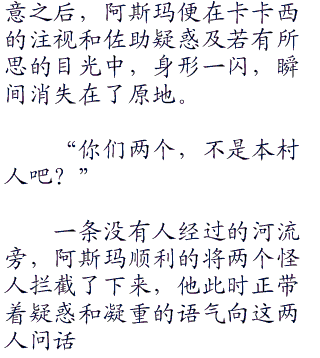 意之后，阿斯玛便在卡卡西
的注视和佐助疑惑及若有所
思的目光中，身形一闪，瞬
间消失在了原地。
“你们两个，不是本村
人吧？”
一条没有人经过的河流
旁，阿斯玛顺利的将两个怪
人拦截了下来，他此时正带
着疑惑和凝重的语气向这两
人问话